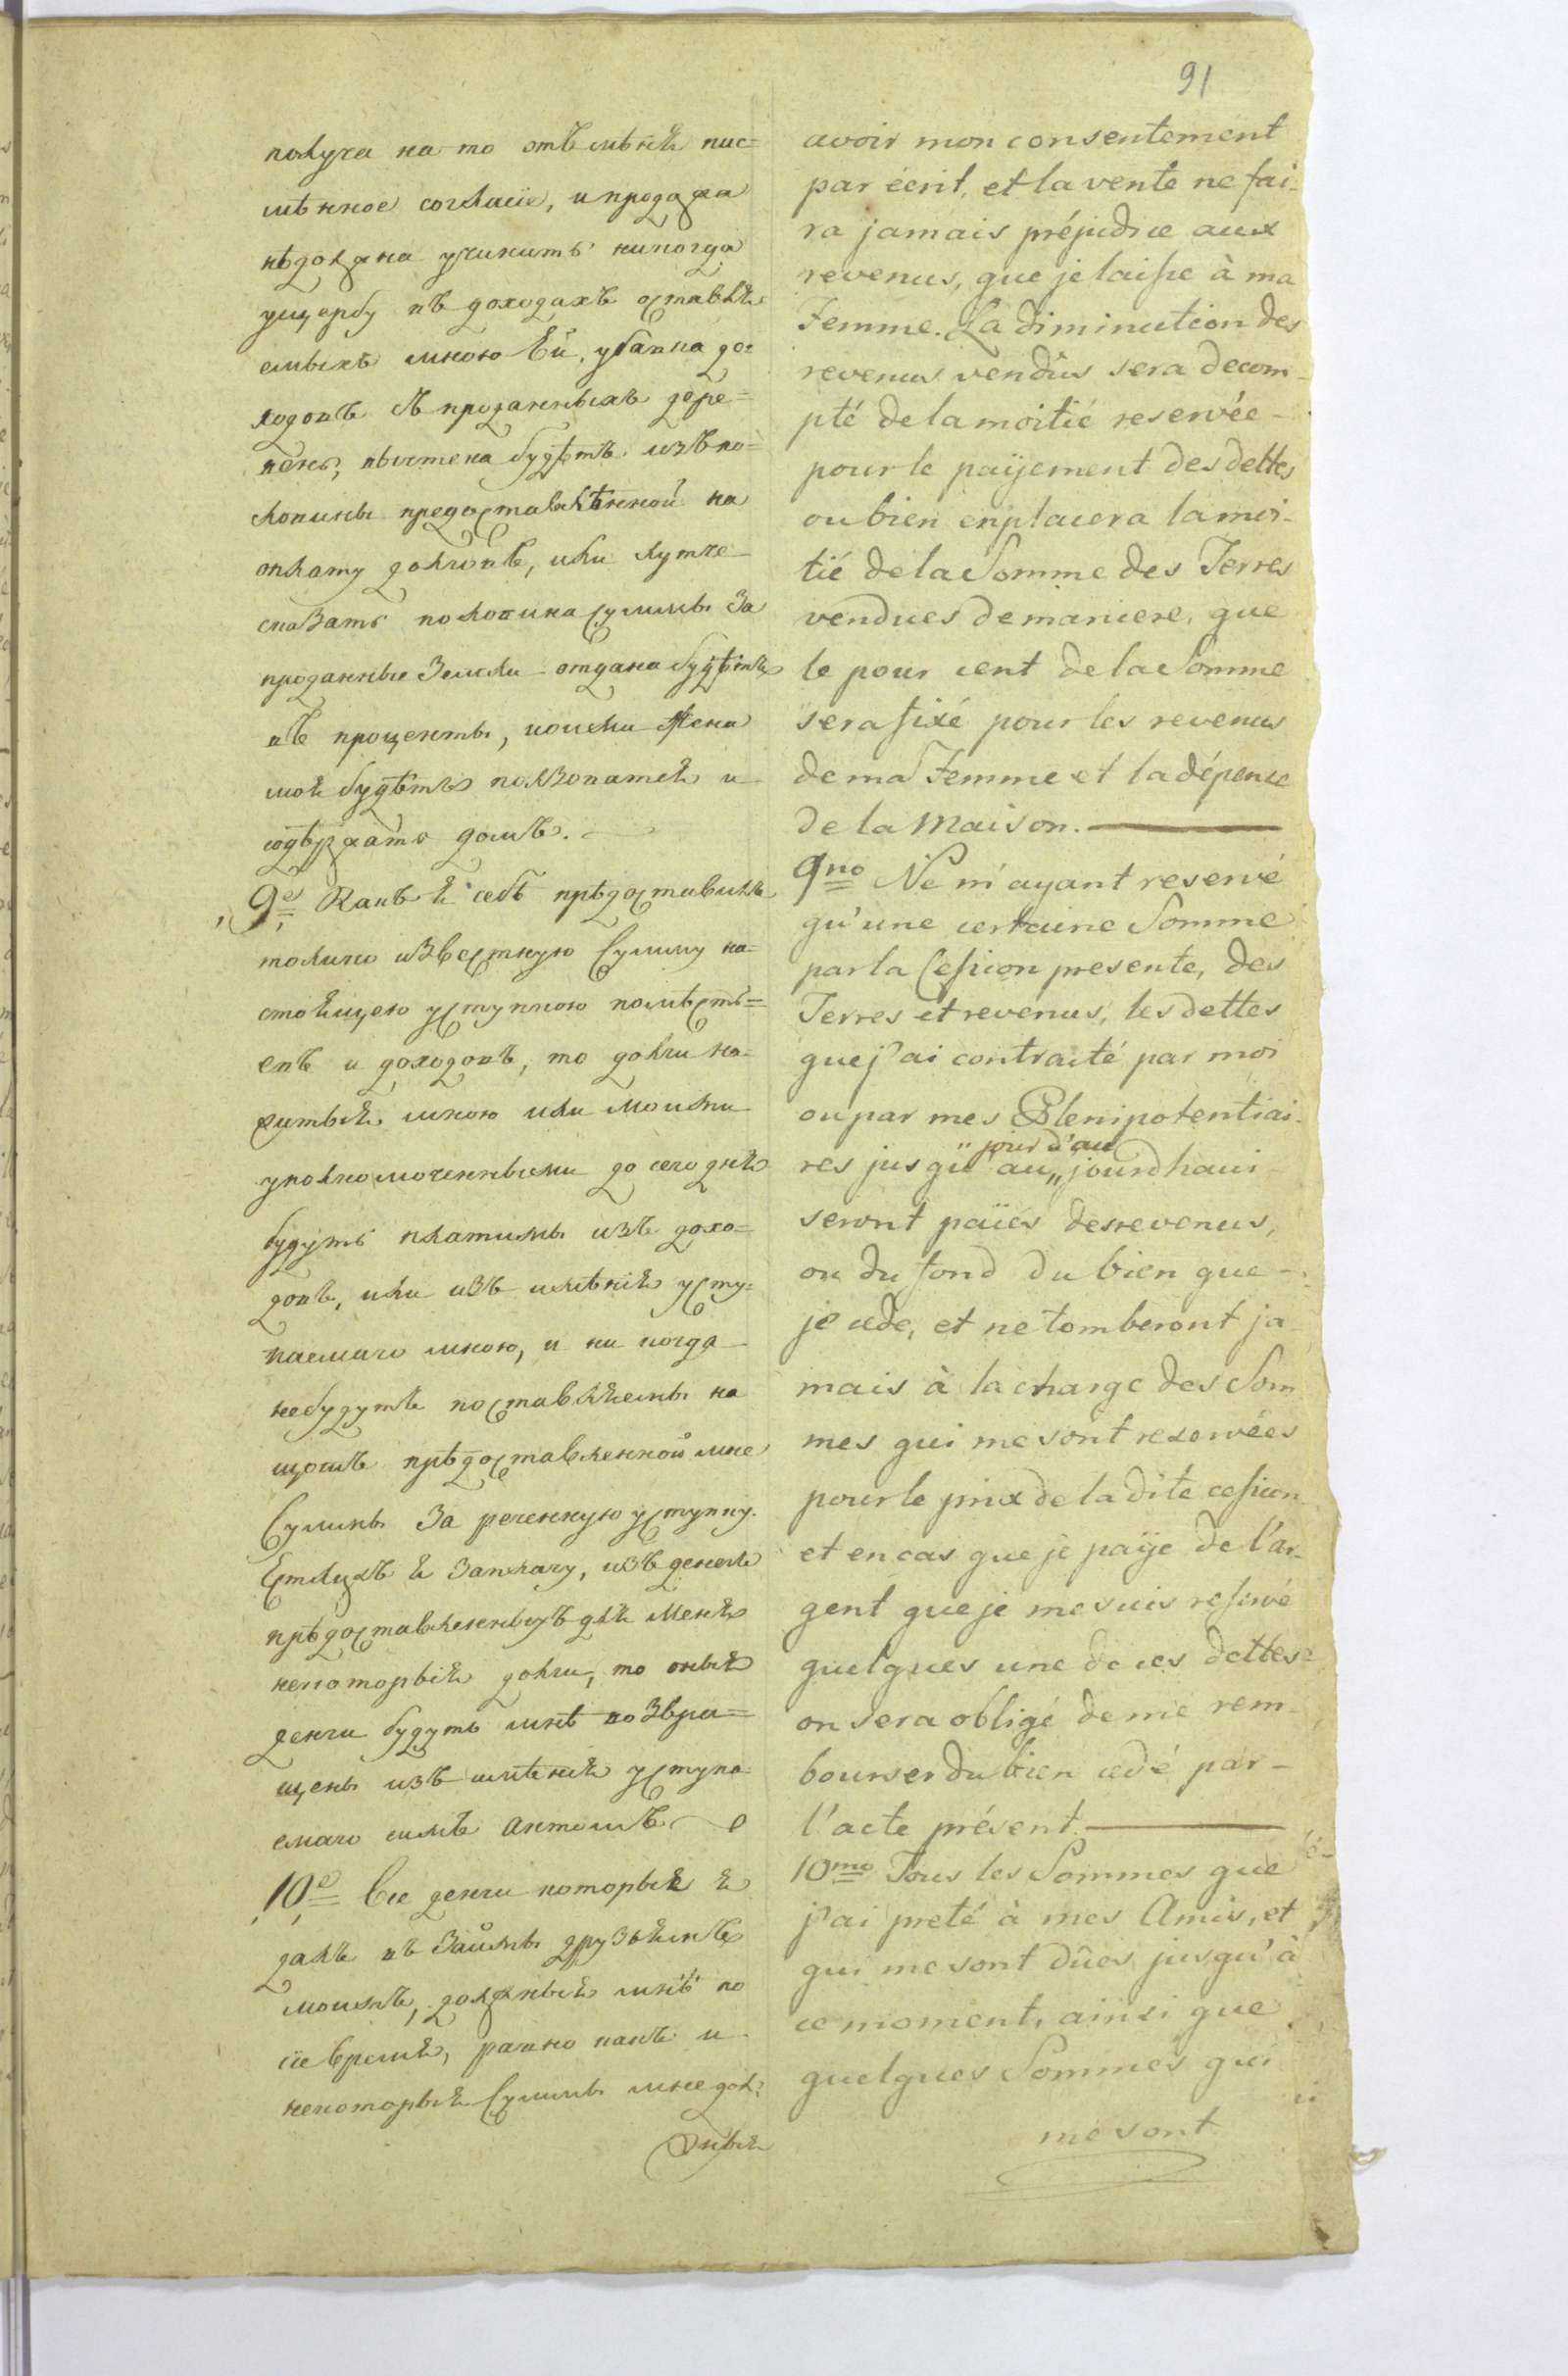 91
получа на то отъ мѣня пис=
мѣнное согласїе, и продажа
нѣдолжна учинить никогда
ущербу въ доходахъ оставля=
емыхъ мною Ей, убавка до=
ходовъ съ проданныхъ дере=
вень, вычтена будетъ изъ по=
ловины предоставлѣнной на
оплату долговъ, или лутче
сказать половина суммы за
проданные Земли отдана будѣтъ
въ проценты, коими Жена
моя будѣтъ ползоватся и
содѣржать домъ.
9е Какъ я себѣ прѣдоставилъ
толико известную Сумму на=
стоящею уступкою помѣсть=
евъ и доходовъ, то долги на=
житыя мною или моими
уполномоченными до сего дня
будуть платимы изъ дохо=
довъ, или изъ имѣния усту=
паемаго мною, и ни когда
небудутъ поставляемы на
щотъ прѣдоставленной мне
Суммы За реченную уступку.
Ежлижъ я Заплачу, изъ денегъ
прѣдоставленныхъ для Меня
некоторыя долги, то оныя
денги будуть мнѣ возвра=
щены изъ имѣния уступа=
емаго симъ актомъ
10е Все денги которыя я
далъ въ Займы друзьямъ
моимъ, должныя мнѣ по
сїе время, равно какъ и
некоторыя Суммы мне дол=
жныя
avoir mon consentement
par écrit, et la vente ne fai-
ra jamais préjudice aux
revenus, que je laisse à ma
Femme. La diminution des
revenus vendûs sera decom-
pté de la moitié reservée -
pour le païjement des dettes
ou bien enplacera la moi-
tié de la Somme des Terres
vendues de maniere, que
le pour cent de la Somme
sera fixé pour les revenus
de ma Femme et la dépence
de la Maison.
9no Ne m'ayant reservé
qu'une certaine Somme
par la Cession presente, des
Terres et revenus, les dettes
que j'ai contracté par moi
ou par mes Plenipotentiai-
jour d'au
res jusqu'au „ jourdhaui -
seront païés des revenus,
ou du fond du bien que -
je cède, et ne tomberont ja
mais à la charge des Som
mes qui me sont reservées
pour le prix de la dite cession
et en cas que je païje de l'ar-
gent que je me suis reservé
quelques une de ces dettes
on sera obligé de me rem-
bourser du bien cedé par -
l'acte présent.
10mo Tous les Sommes que
j'ai preté à mes Amis, et
qui me sont dûes jusqu'à
ce moment, ainsi que
quelques Sommes qui
me sont